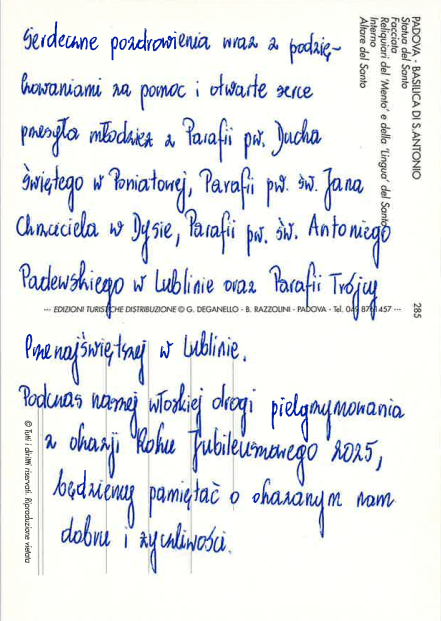 Serdeczne pozdrowienia wraz z podzię-
kowaniami za pomoc i otwarte serce
przesyła młodzież z Parafii pw. Ducha
Świętego w Poniatowej, Parafii pw. św. Jana
Chrzciciela w Dysie, Parafii pw. św. Antoniego
Padewskiego w Lublinie oraz Parafii Trójcy
Przenajświętszej w Lublinie.
Podczas naszej włoskiej drogi pielgrzymowania
z okazji Roku Jubileuszowego 2025,
będziemy pamiętać o okazanym nam
dobru i życzliwości.
PADOVA - BASILICA DI S. ANTONIO
Statua del Santo
Facciata
Reliquiari del 'Mento' e della 'Lingua' del Santo
Interno
Altare del Santo
285
--- EDIZIONI TURISTICHE DISTRIBUZIONE © G. DEGANELLO - B. RAZZOLINI - PADOVA - Tel. 049 871457 ---
© Tutti i diritti riservati. Riproduzione vietata